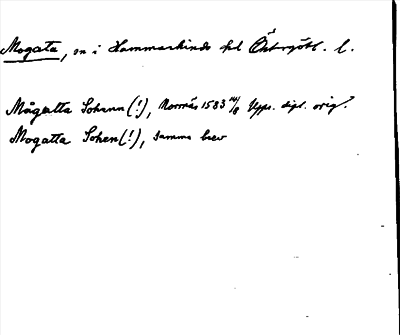 Mogata, sn i Hammarkinds hd Östergötl. l.
Mågatta Sohann (!), Norrnäs 1583 14/8 Upps. dipl. orig.
Mogatta Sohen (!), samma brev